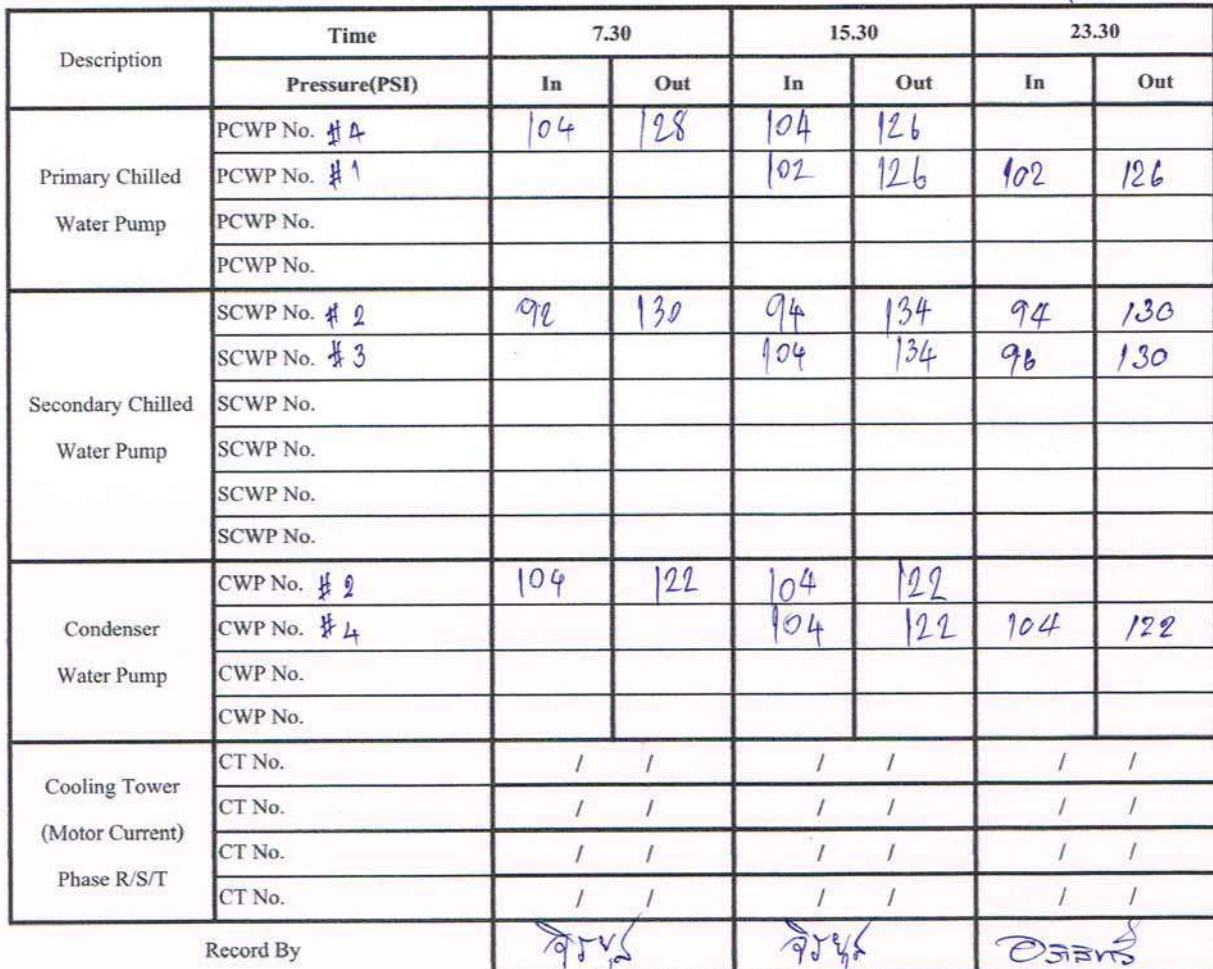 Description Time 7.30 15.30 23.30
Pressure(PSI) In Out In Out In Out
Primary Chilled Water Pump
PCWP No. #4 104 128 104 126
PCWP No. #1 102 126 102 126
PCWP No.
PCWP No.
Secondary Chilled Water Pump
SCWP No. # 2 92 130 94 134 94 130
SCWP No. #3 104 134 96 130
SCWP No.
SCWP No.
SCWP No.
SCWP No.
Condenser Water Pump
CWP No. # 2 104 122 104 122
CWP No. #4 104 122 104 122
CWP No.
CWP No.
Cooling Tower (Motor Current) Phase R/S/T
CT No. / / / / / /
CT No. / / / / / /
CT No. / / / / / /
CT No. / / / / / /
Record By